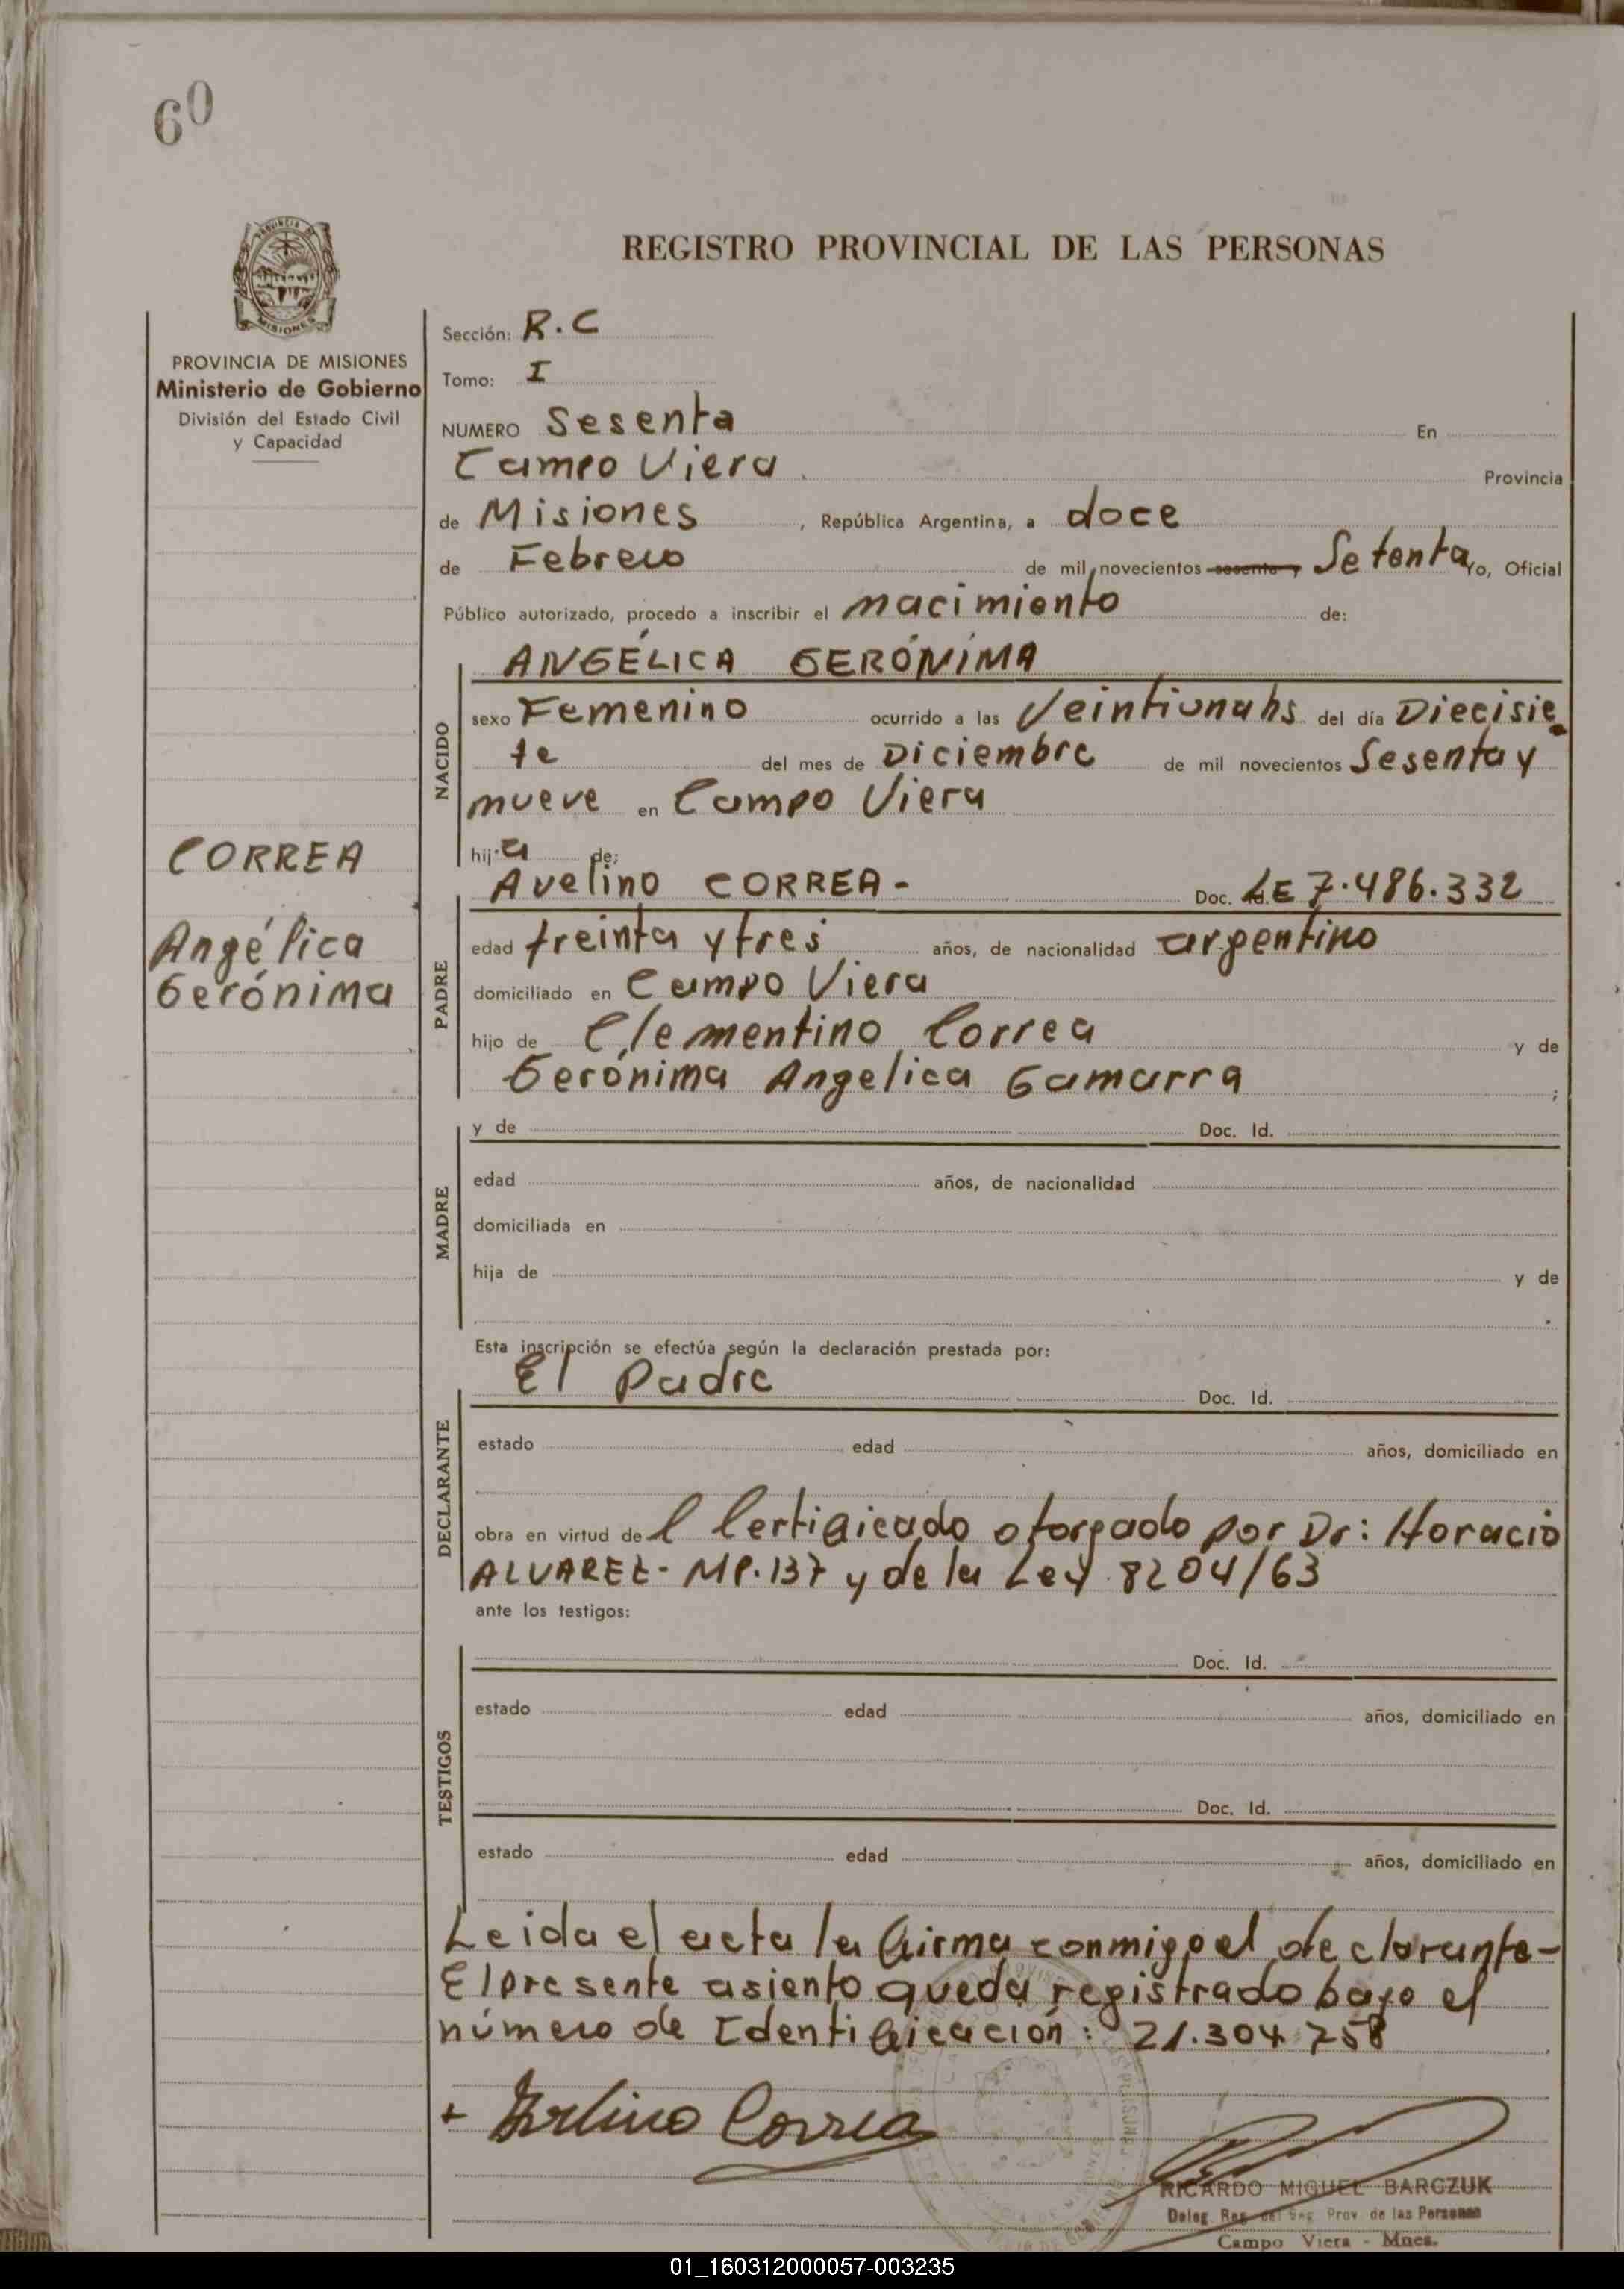 60
MISIONES
PROVINCIA DE MISIONES
Ministerio de Gobierno
División del Estado Civil
y Capacidad
CORREA
Angélica
Gerónima
REGISTRO PROVINCIAL DE LAS PERSONAS
Sección: R.C
Tomo: I
NUMERO Sesenta En
Campo Viera Provincia
de Misiones, República Argentina, a doce
de Febrero de mil novecientos sesenta y Setenta Yo, Oficial
Público autorizado, procedo a inscribir el nacimiento de:
ANGÉLICA GERÓNIMA
NACIDO
sexo Femenino ocurrido a las Veintiunahs del día Diecisie
te del mes de Diciembre de mil novecientos Sesenta y
nueve en Campo Viera
hij a de:
Avelino CORREA- Doc. Id. LE 7.486.332
PADRE
edad treinta y tres años, de nacionalidad argentino
domiciliado en Campo Viera
hijo de Clementino Correa y de
Gerónima Angelica Gamarra ;
MADRE
y de Doc. Id.
edad años, de nacionalidad
domiciliada en
hija de y de
Esta inscripción se efectúa según la declaración prestada por:
El Padre Doc. Id.
DECLARANTE
estado edad años, domiciliado en
obra en virtud de l Certificado otorgado por Dr: Horacio
ALVAREZ- MP.137 y de la Ley 8204/63
ante los testigos:
TESTIGOS
Doc. Id.
estado edad años, domiciliado en
Doc. Id.
estado edad años, domiciliado en
Leida el acta la firma conmigo el declarante-
El presente asiento queda registrado bajo el
número de Identificación: 21.304.758
+ Avelino Correa
RICARDO MIGUEL BARCZUK
Deleg. Reg. del Reg. Prov. de las Personas
Campo Viera - Mnes.
01_160312000057-003235